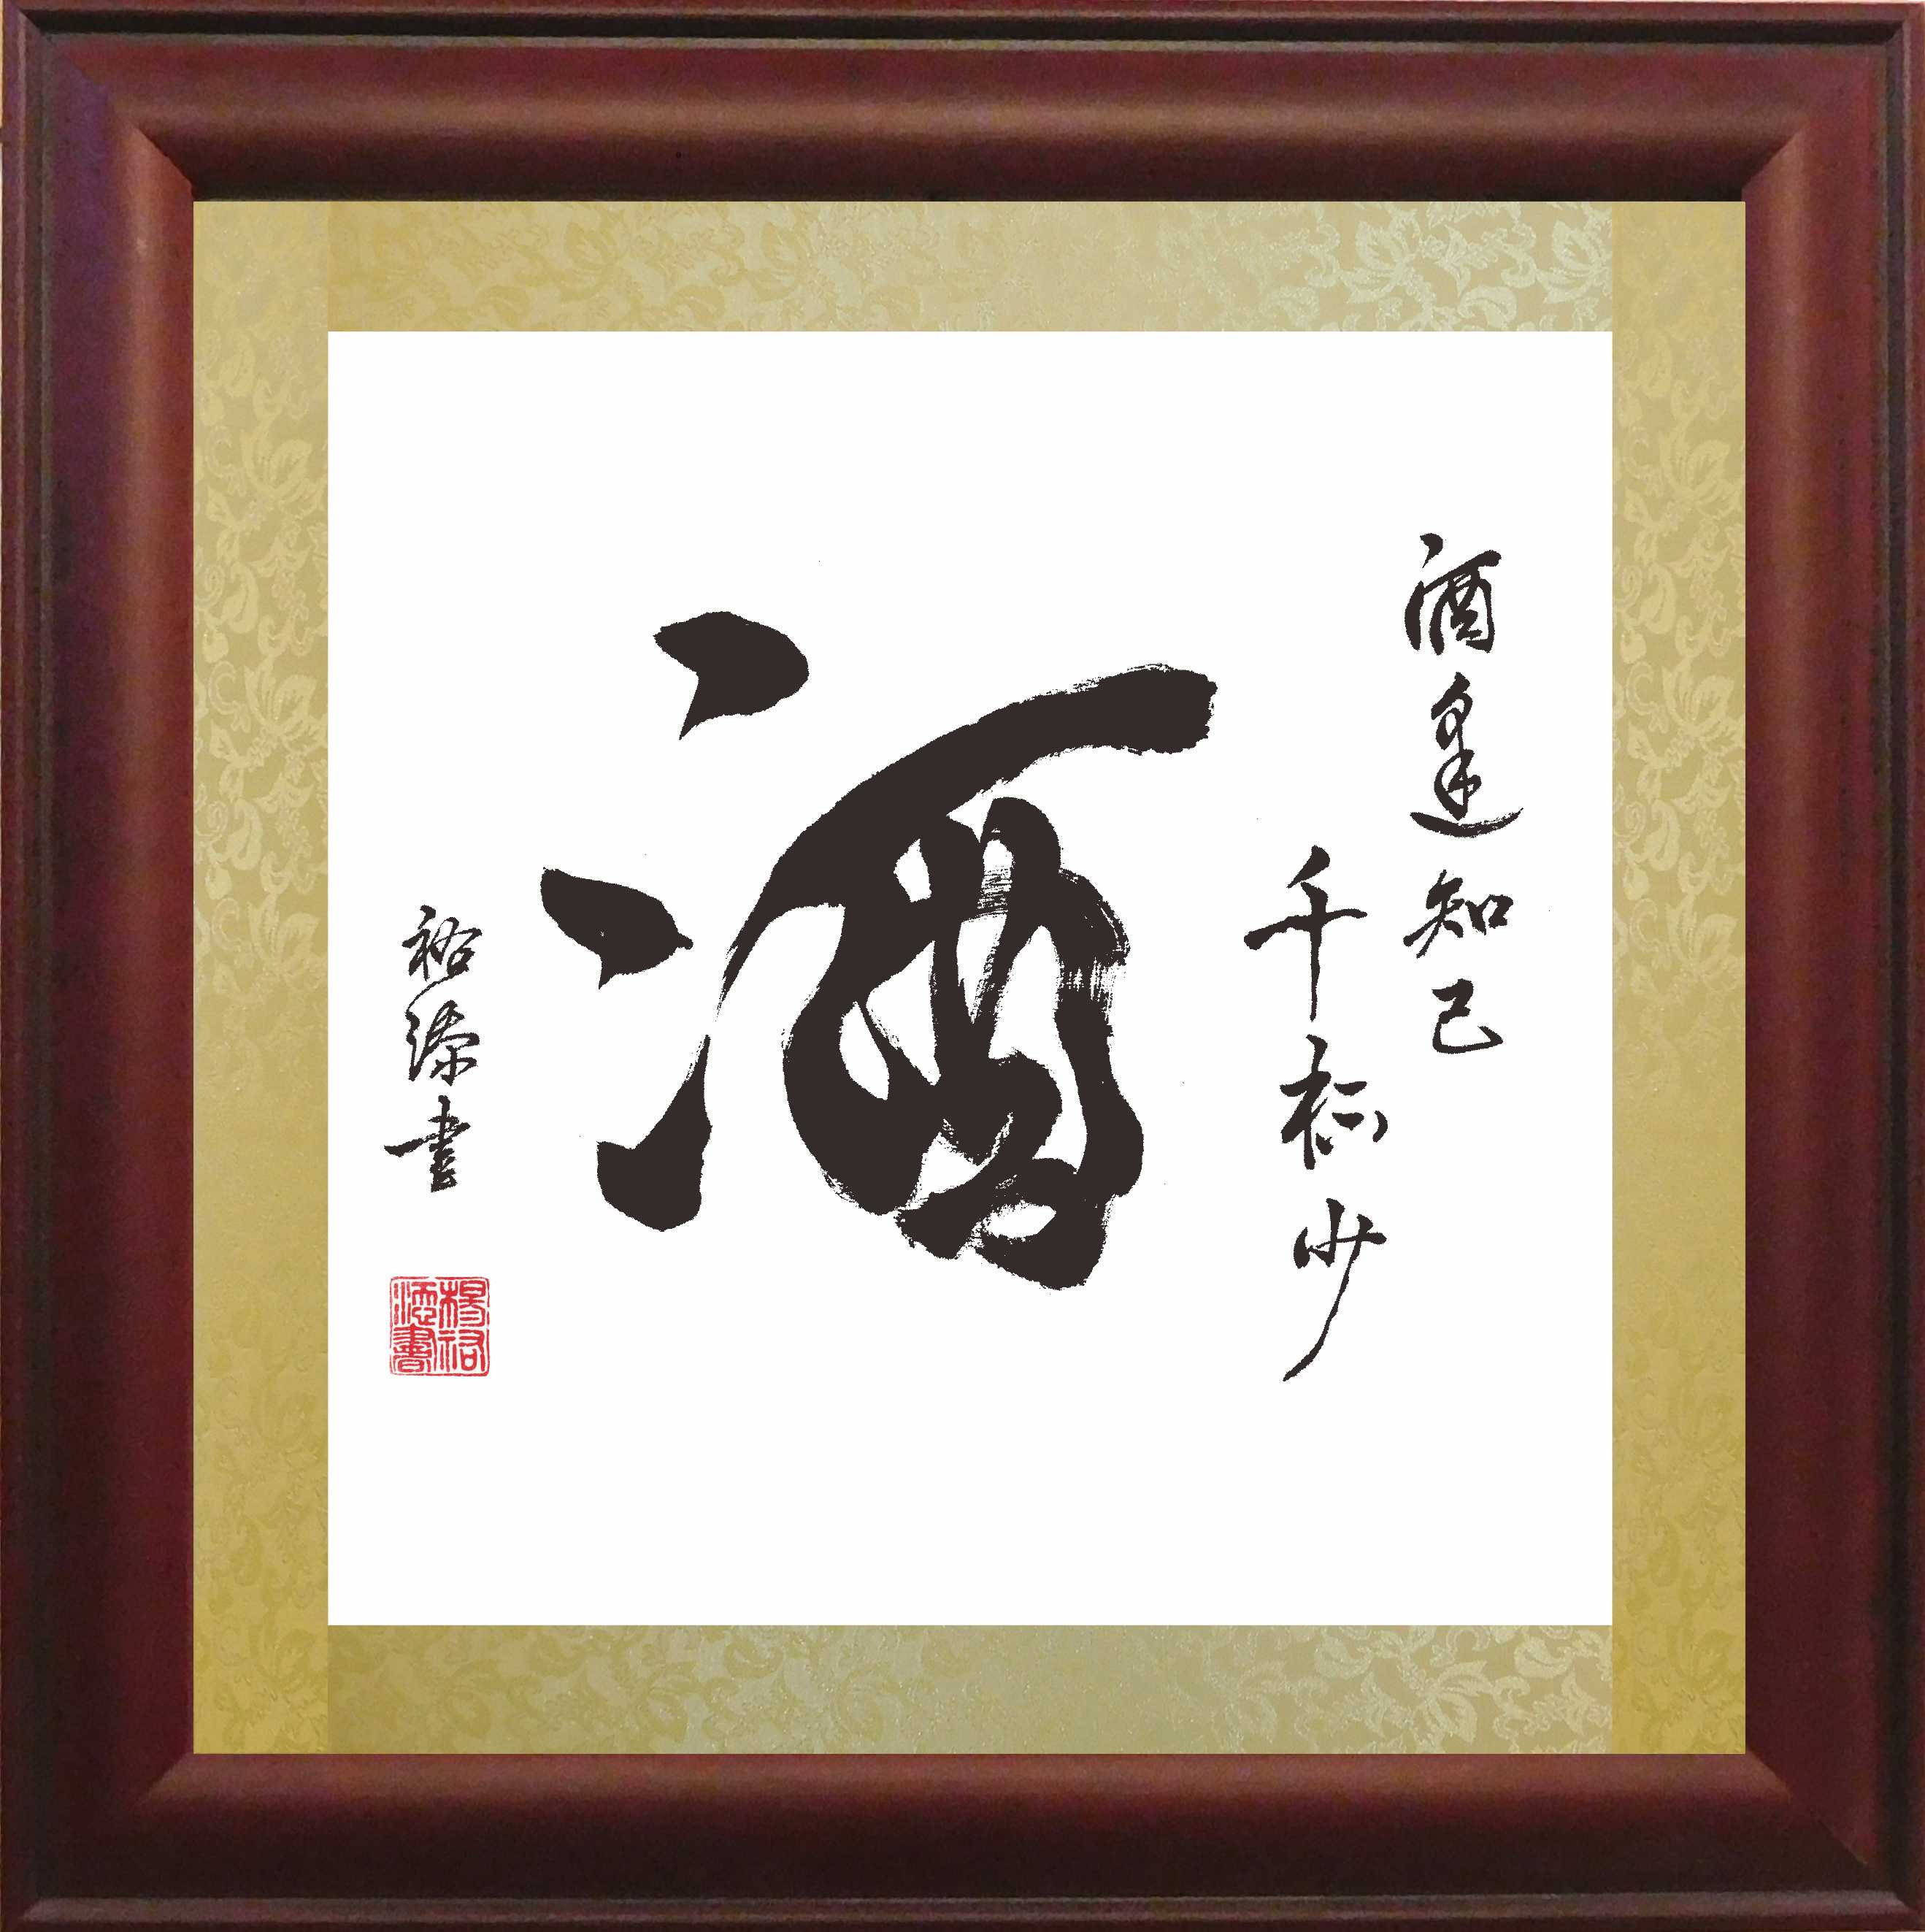 酒逢知己
千杯少
酒
裕添書
楊裕
添書